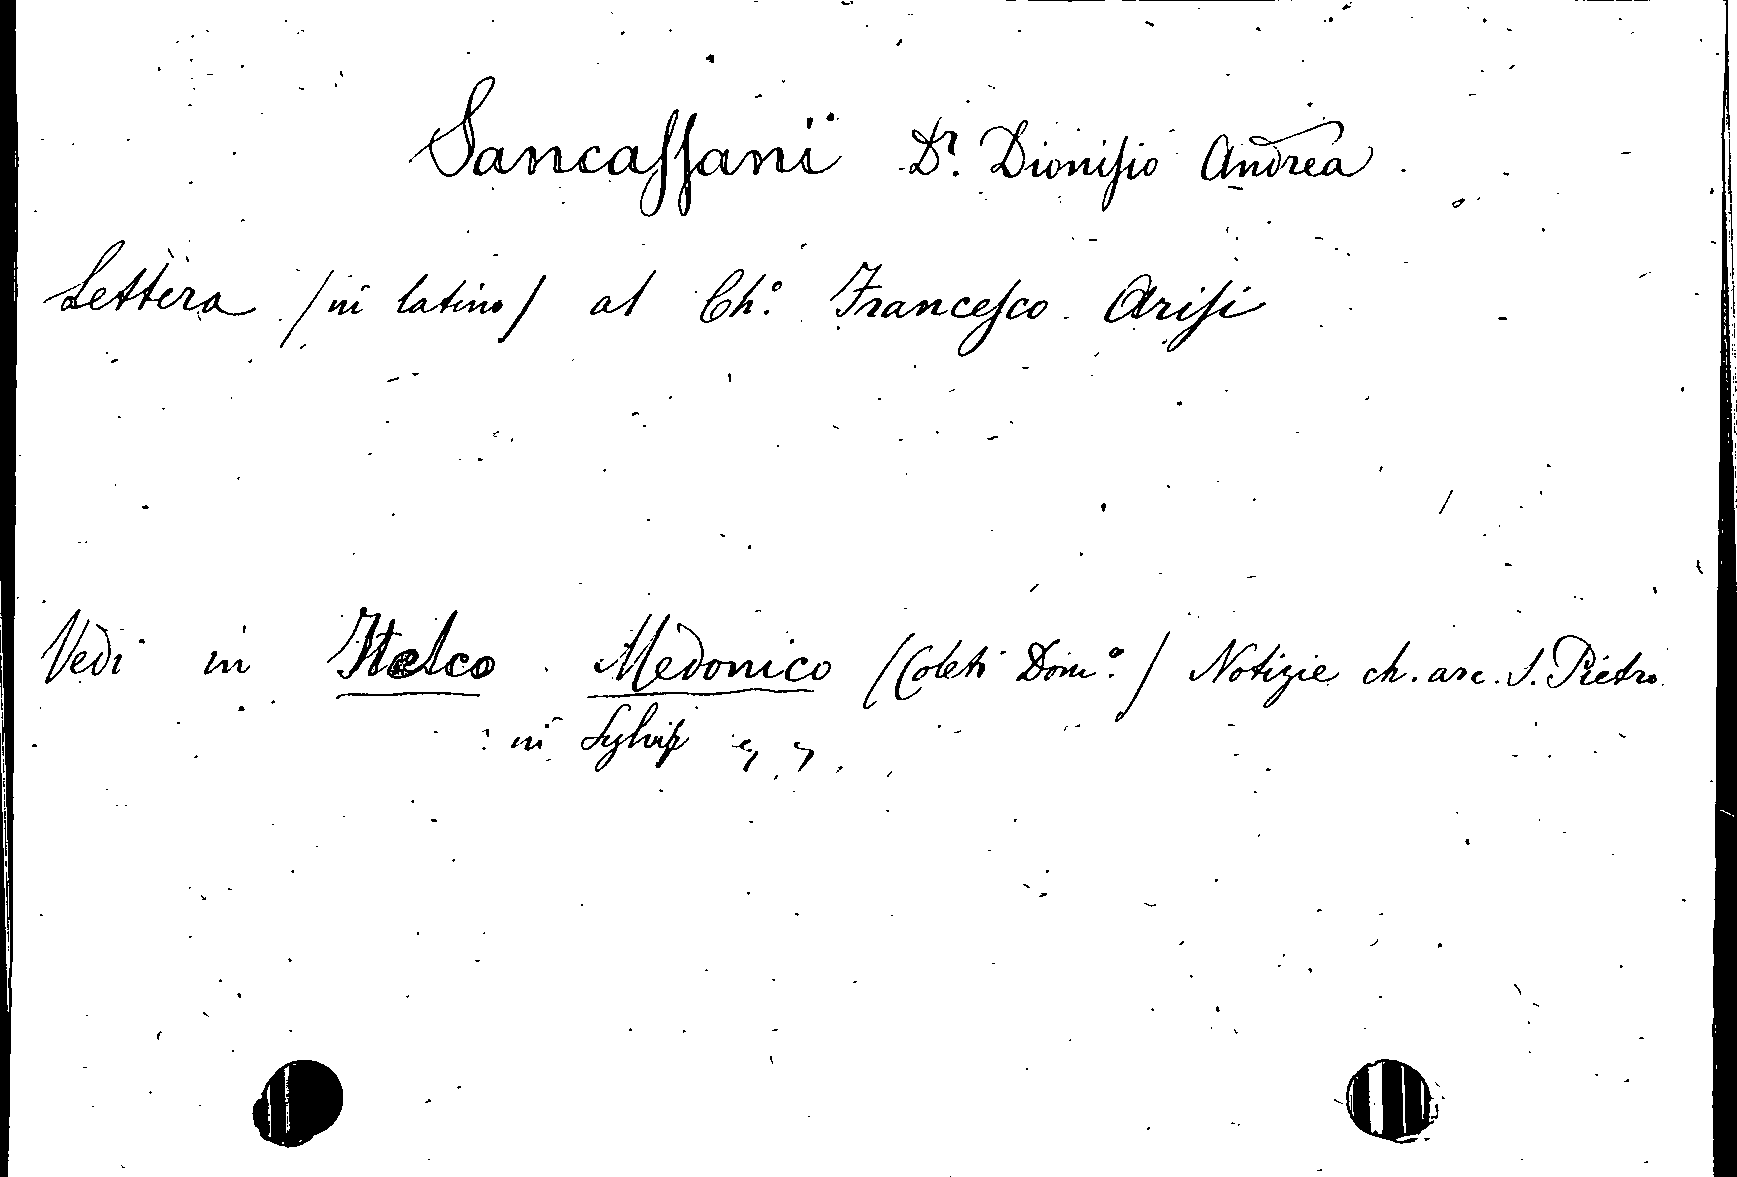 Sancassani Dr. Dionisio Andrea
Lettera /in latino/ al Ch.º Francesco Arisi
Vedi in Itelco Medonico (Coleti Dom.º / Notizie ch. arc. S. Pietro
in Sylvis